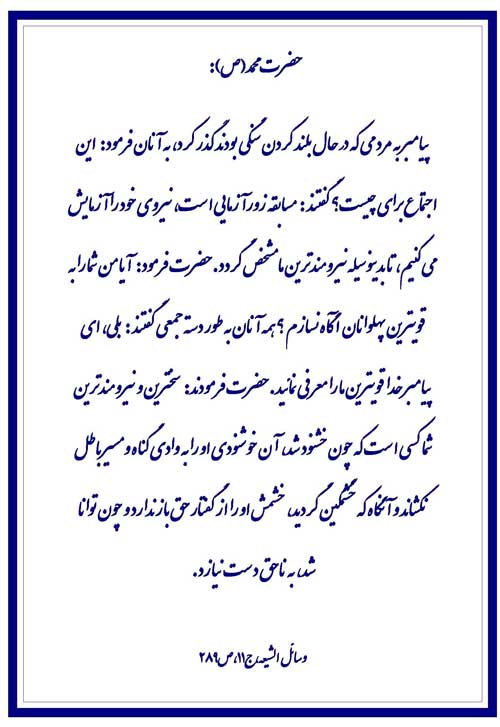 حضرت محمد(ص):
پیامبر به مردمی که در حال بلند کردن سنگی بودند گذر کرد، به آنان فرمود: این
اجتماع برای چیست؟ گفتند: مسابقه زورآزمایی است، نیروی خود را آزمایش
می کنیم، تا بدینوسیله نیرومندترین ما مشخص گردد. حضرت فرمود: آیا من شما را به
قویترین پهلوانان آگاه نسازم؟ همه آنان به طور دسته جمعی گفتند: بلی، ای
پیامبر خدا قویترین ما را معرفی نمائید. حضرت فرمودند: سختترین و نیرومندترین
شما کسی است که چون خشنود شد، آن خوشنودی او را به وادی گناه و مسیر باطل
نکشاند و آنگاه که خشمگین گردید، خشمش او را از گفتار حق باز ندارد و چون توانا
شد، به ناحق دست نیازد.
وسائل الشیعه، ج۱۱، ص۲۸۹